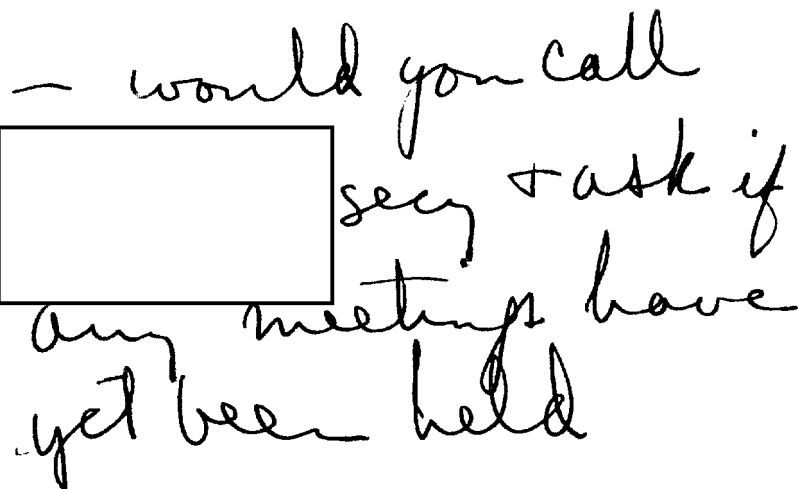 – would you call
secy + ask if
any meetings have
yet been held